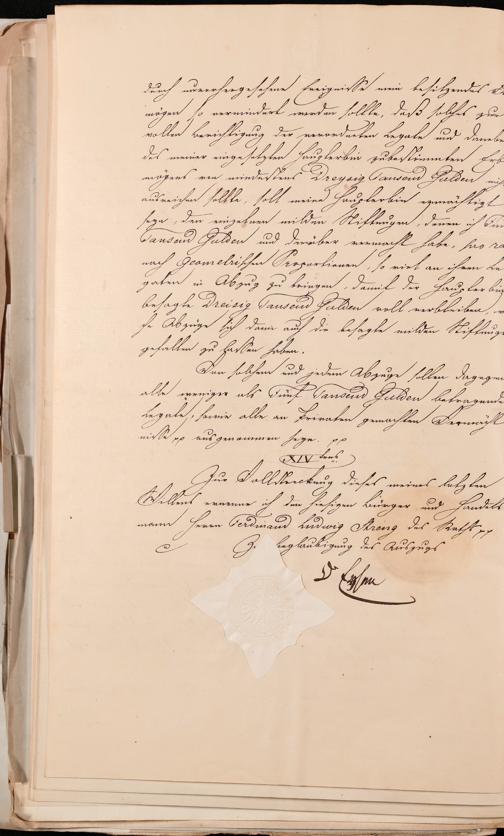 durch unvorhergesehene Ereignisse mein besitzendes
mögen so vermindert werden sollte, daß solches zur
vollen Berichtigung der verordneten Legate und daneben
des meiner eingesetzten Haupterbin zubestimmten
mögens von mindestens Dreysig Tausend Gulden
ausreichen sollte, soll meine Haupterbin ermächtigt
seyn, den einzelnen milden Stiftungen, denen ich
Tausend Gulden und darüber vermacht habe, pro
nach geometrischen Proportionen, so viel an ihren
gaten in Abzug zu bringen, damit der Haupterbin
besagte Dreisig Tausend Gulden voll verbleiben,
se Abzüge sich dann auch die besagte milden Stiftungen
gefallen zu lassen haben.
Von solchem und jedem Abzuge sollen dagegen
alle weniger als Fünf Tausend Gulden betragende
Legate, sowie alle an Privaten gemachten Vermächt
nisse pp ausgenommen seyn. pp
XIV tens
Zur Vollstreckung dieses meines letzten
Willens ernenne ich den hiesigen Bürger und Handels
mann Herrn Ferdinand Ludwig Streng des Raths pp
Zur Beglaubigung des Auszugs
Dr